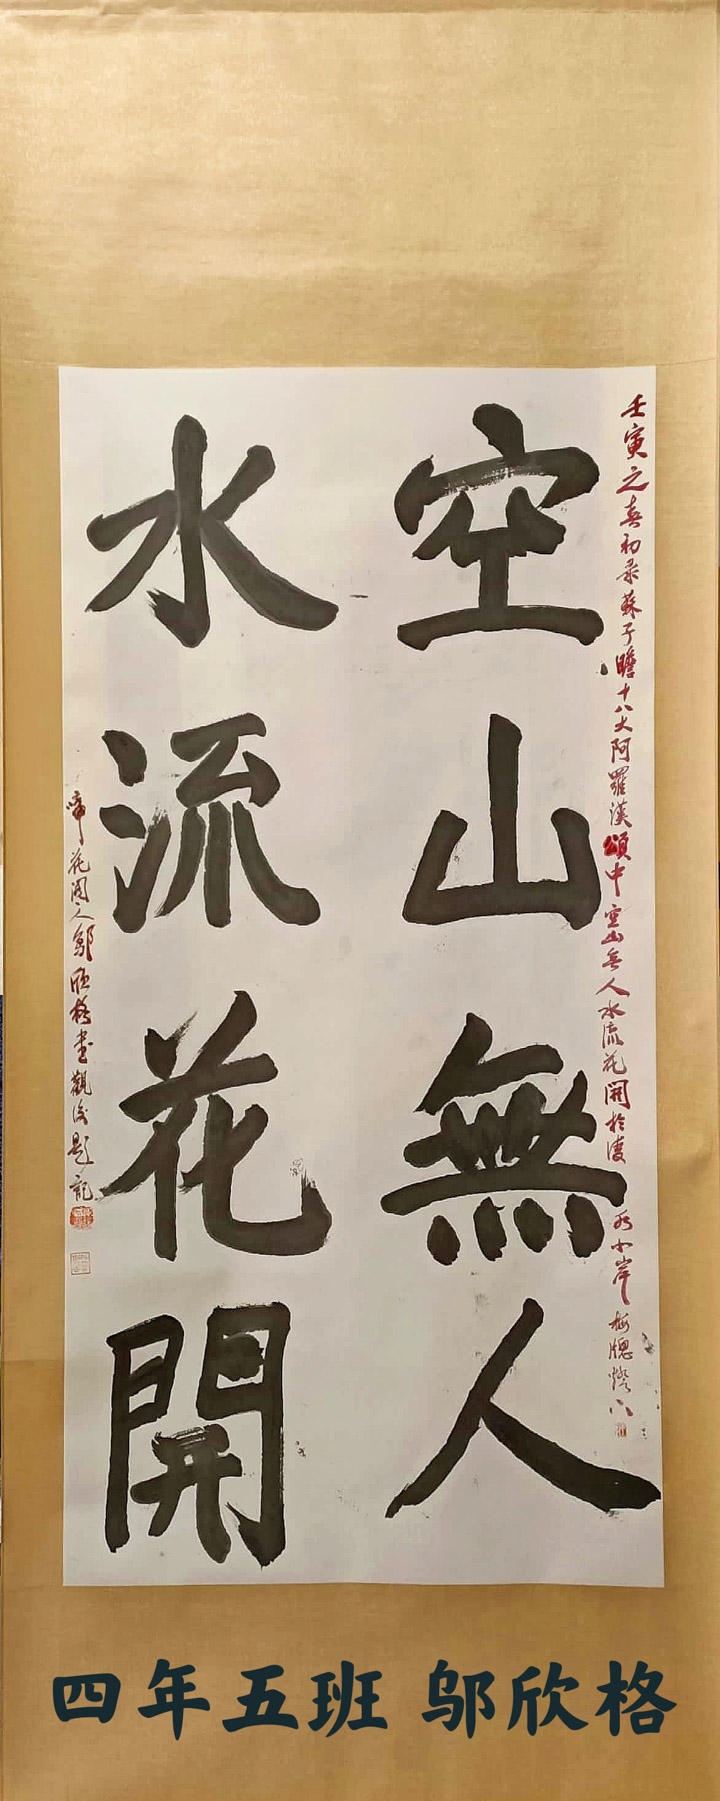 壬寅之春初录蘇子瞻十八大阿羅漢頌中空山無人水流花開於凌
小岸梅窗燈下
空山無人
水流花開
花開人鄔欣格書觀後題記
四年五班 邬欣格